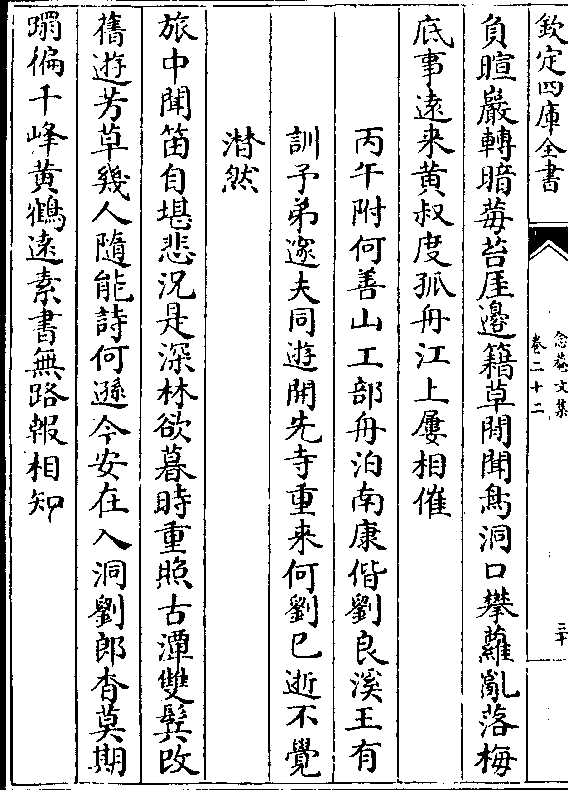 欽定四庫全書
念菴文集
卷二十二
三十
負暄巖轉暗莓苔厓邊籍草閒聞鳥洞口攀蘿亂落梅
底事遠来黄叔度孤舟江上屢相催
丙午附何善山工部舟泊南康偕劉良溪王有
訓予弟邃夫同遊開先寺重来何劉已逝不覺
潸然
旅中聞笛自堪悲況是深林欲暮時重照古潭雙鬂改
舊遊芳草幾人隨能詩何遜今安在入洞劉郎杳莫期
躡徧千峰黄鶴遠素書無路報相知